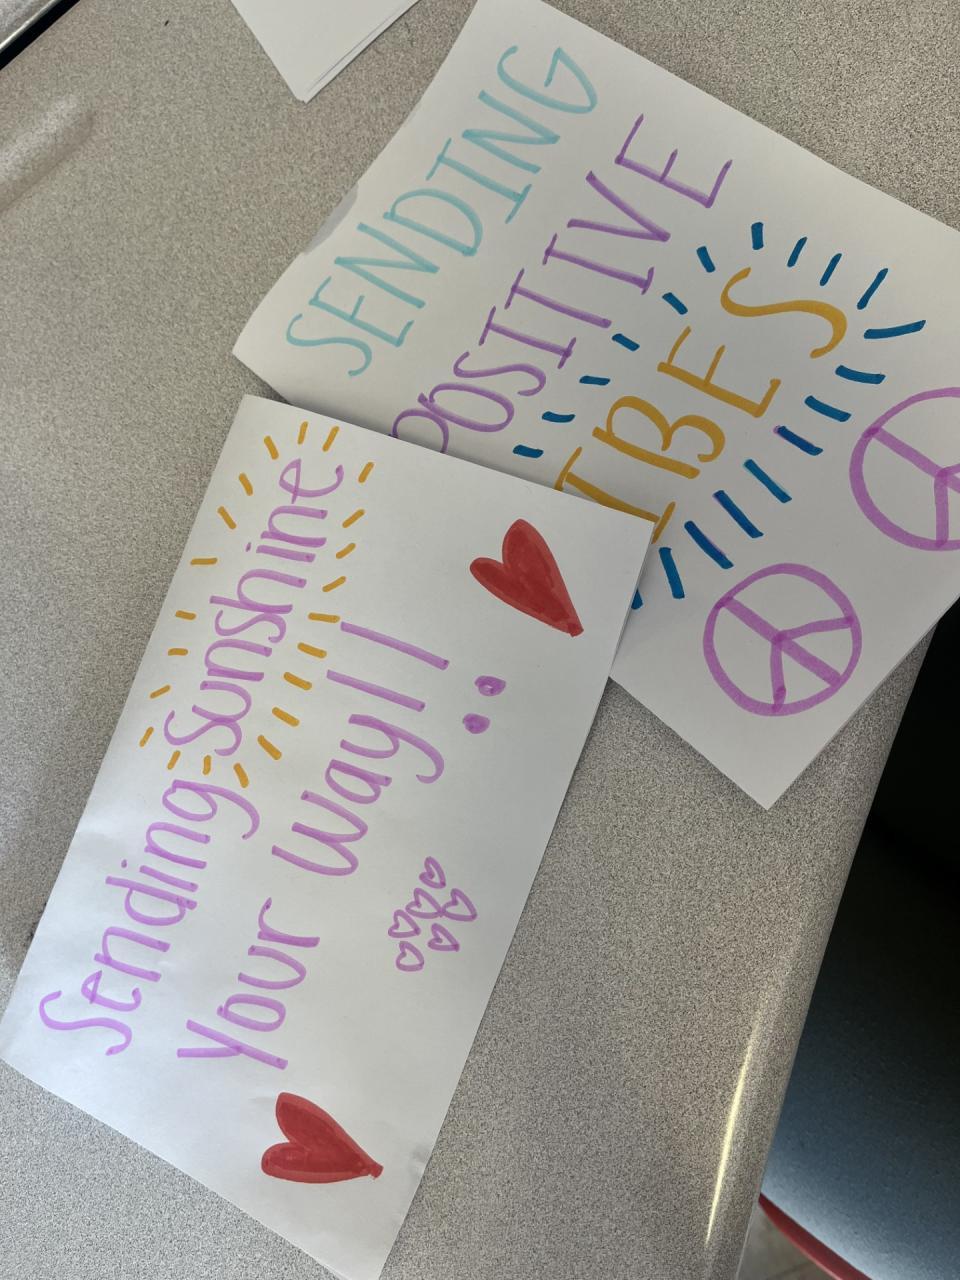 SENDING
POSITIVE
IBES
Sending Sunshine
Your Way!!